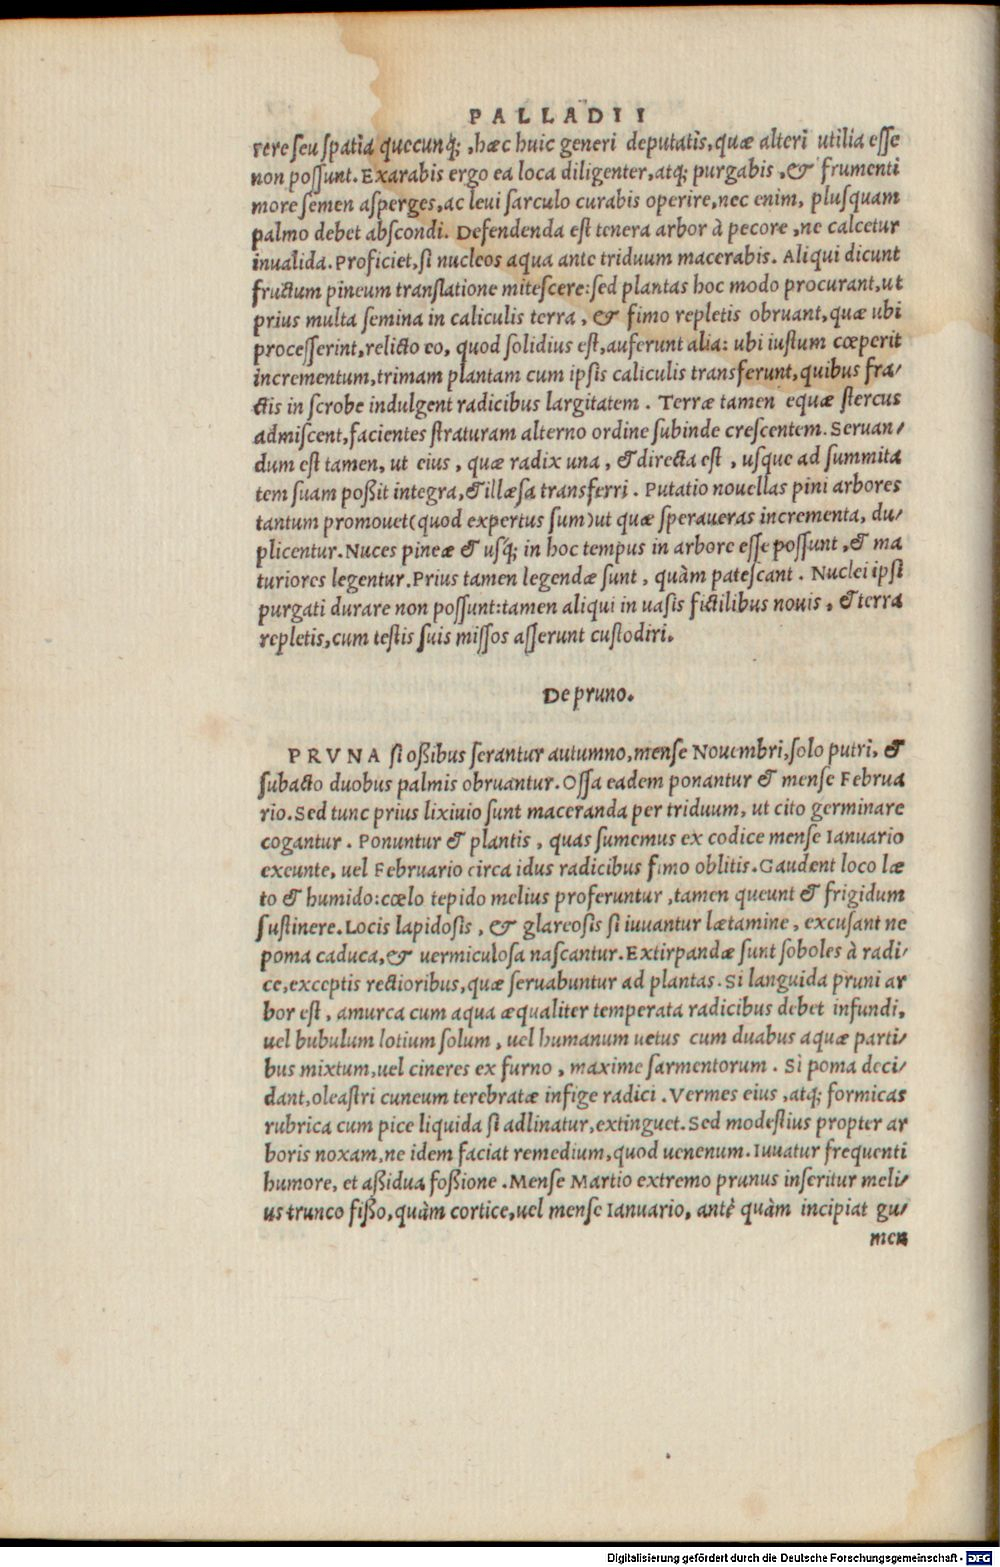 PALLADII
rere seu spatia quecunq;, hæc huic generi deputatis, quæ alteri utilia esse
non possunt. Exarabis ergo ea loca diligenter, atq; purgabis, & frumenti
more semen asperges, ac leui sarculo curabis operire, nec enim, plusquam
palmo debet abscondi. Defendenda est tenera arbor à pecore, ne calcetur
inualida. Proficiet, si nucleos aqua ante triduum macerabis. Aliqui dicunt
fructum pineum translatione mitescere: sed plantas hoc modo procurant, ut
prius multa semina in caliculis terra, & fimo repletis obruant, quæ ubi
processerint, relicto eo, quod solidius est, auferunt alia: ubi iustum cœperit
incrementum, trimam plantam cum ipsis caliculis transferunt, quibus fra/
ctis in scrobe indulgent radicibus largitatem. Terræ tamen equæ stercus
admiscent, facientes straturam alterno ordine subinde crescentem. Seruan/
dum est tamen, ut eius, quæ radix una, & directa est, usque ad summita
tem suam poßit integra, & illæsa transferri. Putatio nouellas pini arbores
tantum promouet (quod expertus sum) ut quæ speraueras incrementa, du/
plicentur. Nuces pineæ & usq; in hoc tempus in arbore esse possunt, & ma
turiores legentur. Prius tamen legendæ sunt, quàm patescant. Nuclei ipsi
purgati durare non possunt: tamen aliqui in uasis fictilibus nouis, & terra
repletis, cum testis suis missos asserunt custodiri.
De pruno.
PRVNA si oßibus serantur autumno, mense Nouembri, solo putri, &
subacto duobus palmis obruantur. Ossa eadem ponantur & mense Februa
rio. Sed tunc prius lixiuio sunt maceranda per triduum, ut cito germinare
cogantur. Ponuntur & plantis, quas sumemus ex codice mense Ianuario
exeunte, uel Februario circa idus radicibus fimo oblitis. Gaudent loco læ
to & humido: cœlo tepido melius proferuntur, tamen queunt & frigidum
sustinere. Locis lapidosis, & glareosis si iuuantur lætamine, excusant ne
poma caduca, & uermiculosa nascantur. Extirpandæ sunt soboles à radi/
ce, exceptis rectioribus, quæ seruabuntur ad plantas. Si languida pruni ar
bor est, amurca cum aqua æqualiter temperata radicibus debet infundi,
uel bubulum lotium solum, uel humanum uetus cum duabus aquæ parti/
bus mixtum, uel cineres ex furno, maxime sarmentorum. Si poma deci/
dant, oleastri cuneum terebratæ infige radici. Vermes eius, atq; formicas
rubrica cum pice liquida si adlinatur, extinguet. Sed modestius propter ar
boris noxam, ne idem faciat remedium, quod uenenum. Iuuatur frequenti
humore, et aßidua foßione. Mense Martio extremo prunus inseritur meli/
us trunco fißo, quàm cortice, uel mense Ianuario, antè quàm incipiat gu/
men
Digitalisierung gefördert durch die Deutsche Forschungsgemeinschaft - DFG